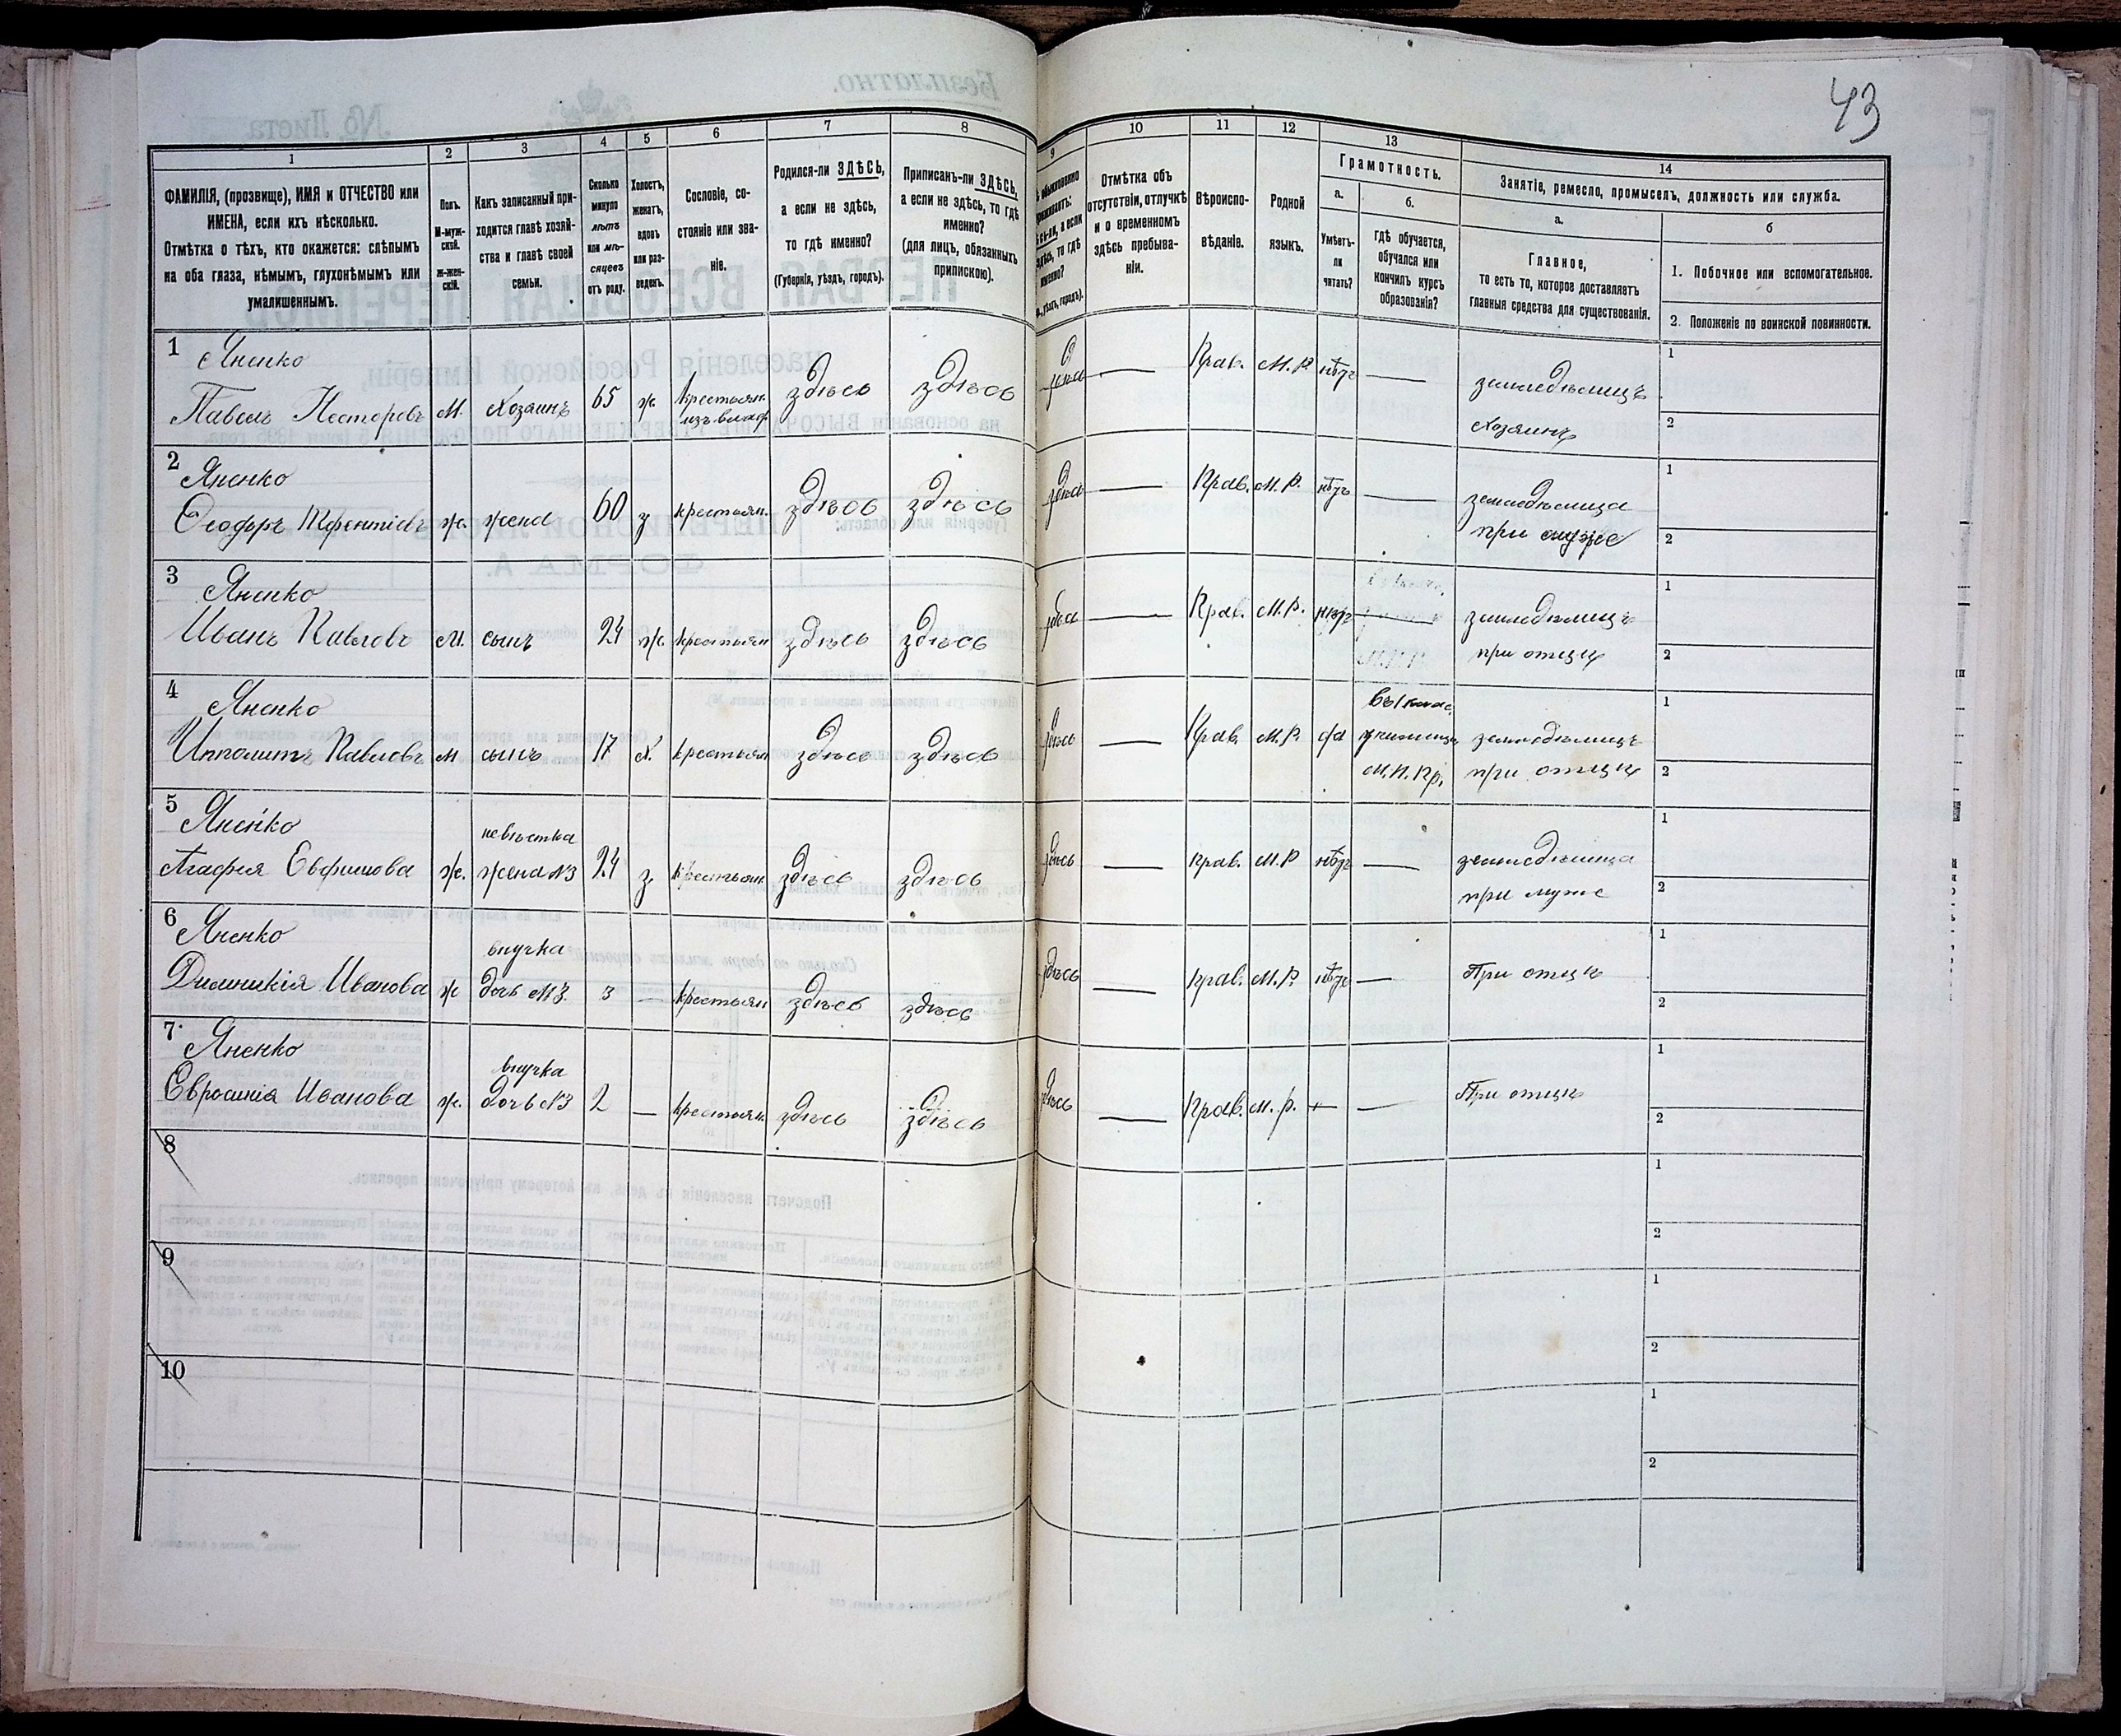 43
1
2
3
4
5
6
7
8
9
10
11
12
13
14
ФАМИЛІЯ, (прозвище), ИМЯ и ОТЧЕСТВО или
ИМЕНА, если ихъ нѣсколько.
Отмѣтка о тѣхъ, кто окажется: слѣпымъ
на оба глаза, нѣмымъ, глухонѣмымъ или
умалишеннымъ.
Полъ.
М-муж-
ской.
Ж-жен-
скій.
Какъ записанный при-
ходится главѣ хозяй-
ства и главѣ своей
семьи.
Сколько
минуло
лѣтъ
или мѣ-
сяцевъ
отъ роду.
Холостъ,
женатъ,
вдовъ
или раз-
веденъ.
Сословіе, со-
стояніе или зва-
ніе.
Родился-ли ЗДѢСЬ,
а если не здѣсь,
то гдѣ именно?
(Губернія, уѣздъ, городъ).
Приписанъ-ли ЗДѢСЬ,
а если не здѣсь, то гдѣ
именно?
(для лицъ, обязанныхъ
припискою).
Отмѣтка объ
отсутствіи, отлучкѣ
и о временномъ
здѣсь пребыва-
ніи.
Вѣроиспо-
вѣданіе.
Родной
языкъ.
Грамотность.
а.
Умѣетъ-
ли
читать?
б.
гдѣ обучается,
обучался или
кончилъ курсъ
образованія?
Занятіе, ремесло, промыселъ, должность или служба.
а.
Главное,
то есть то, которое доставляетъ
главныя средства для существованія.
б
1. Побочное или вспомогательное.
2. Положеніе по воинской повинности.
1 Яненко
Павелъ Нестеровъ М. Хозяинъ 65 ж. Крестьян. здѣсь здѣсь здѣсь — Прав. М.Р. нѣтъ — земледѣлицъ 1
изъ влад. Хозяинъ 2
2 Яненко
ж. жена 60 з крестьян. здѣсь здѣсь здѣсь — Прав. М.Р. нѣтъ — земледѣлица 1
при мужѣ 2
3 Яненко
Иванъ Павловъ М. сынъ 24 ж. крестьян здѣсь здѣсь здѣсь — Прав. М.Р. нѣтъ — земледѣлицъ 1
при отцѣ 2
4 Яненко въ 1 клас.
Ипполитъ Павловъ М сынъ 17 х. крестьян здѣсь здѣсь здѣсь — Прав. М.Р. да училища земледѣлицъ 1
М.Н.Пр. при отцѣ 2
5 Яненко невѣстка
Агафия Евфимова ж. жена №3 24 з крестьян здѣсь здѣсь здѣсь — прав. М.Р нѣтъ — земледѣлица 1
при мужѣ 2
6 Яненко внучка
Иванова ж дочь №3. 3 — крестьян здѣсь здѣсь здѣсь — прав. М.Р. нѣтъ — При отцѣ 1
2
7 Яненко внучка
Евросинія Иванова ж. дочь №3 2 — крестьян. здѣсь здѣсь здѣсь — Прав. М.р. — — При отцѣ 1
2
8 1
2
9 1
2
10 1
2